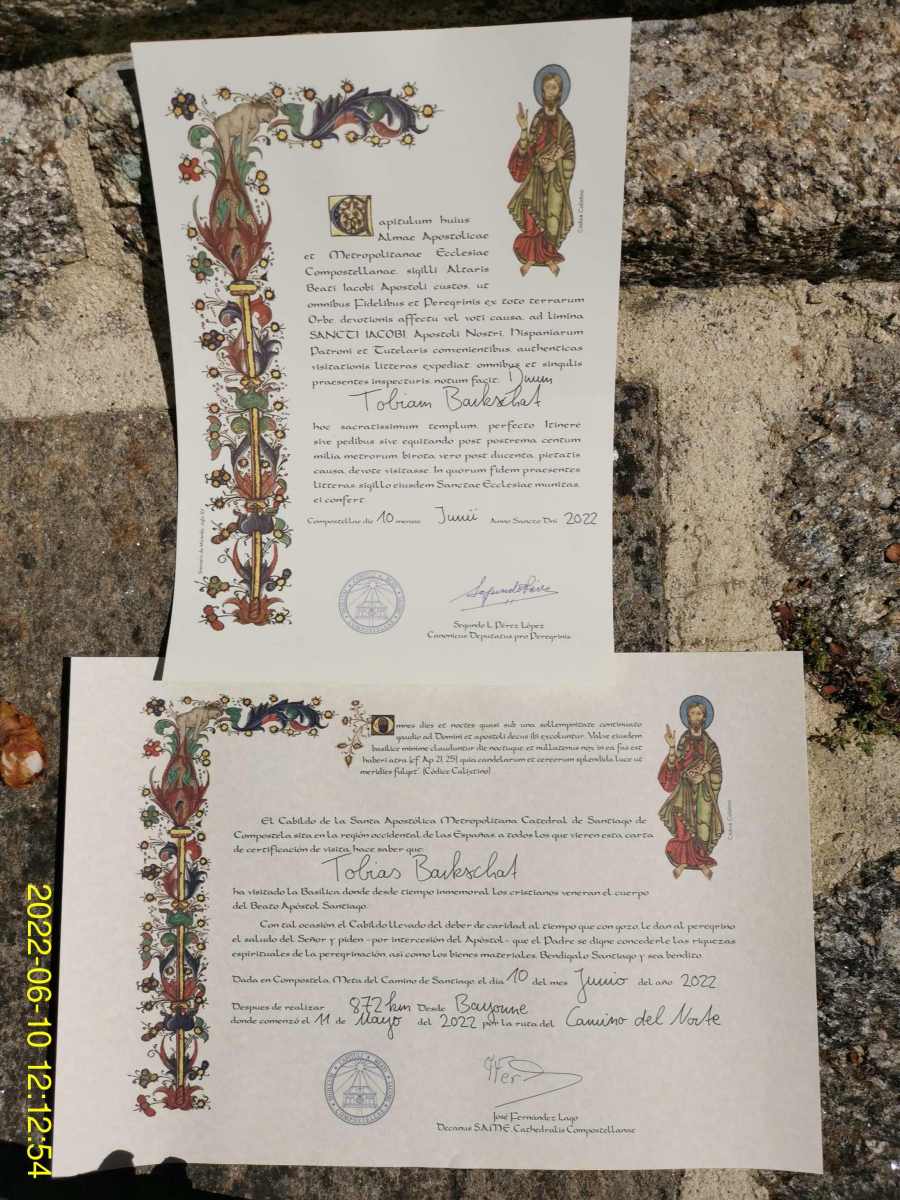 Capitulum huius
Almae Apostolicae
et Metropolitanae Ecclesiae
Compostellanae, sigilli Altaris
Beati Iacobi Apostoli custos, ut
omnibus Fidelibus et Peregrinis ex toto terrarum
Orbe, devotionis affectu vel voti causa, ad limina
SANCTI IACOBI, Apostoli Nostri, Hispaniarum
Patroni et Tutelaris convenientibus, authenticas
visitationis litteras expediat, omnibus et singulis
praesentes inspecturis, notum facit: Dnum
Tobiam Barkschat
hoc sacratissimum templum, perfecto Itinere
sive pedibus sive equitando post postrema centum
milia metrorum, birota vero post ducenta, pietatis
causa, devote visitasse. In quorum fidem praesentes
litteras, sigillo eiusdem Sanctae Ecclesiae munitas,
ei confert.
Compostellae die 10 mensis Junii Anno Sancto Dni 2022
Segundo L. Pérez López
Canonicus Deputatus pro Peregrinis
Códice Calixtino
Omnes dies et noctes quasi sub una sollempnitate continuato
gaudio ad Domini et apostoli decus ibi excoluntur. Valve eiusdem
basilice minime clauduntur die noctuque, et nullatenus nox in ea fas est
haberi atra [cf. Ap 21, 25], quia candelarum et cereorum splendida luce ut
meridies fulget. (Códice Calixtino)
El Cabildo de la Santa Apostólica Metropolitana Catedral de Santiago de
Compostela sita en la región occidental de las Españas, a todos los que vieren esta carta
de certificación de visita, hace saber que:
Tobias Barkschat
ha visitado la Basílica donde desde tiempo inmemorial los cristianos veneran el cuerpo
del Beato Apóstol Santiago.
Con tal ocasión, el Cabildo llevado del deber de caridad, al tiempo que con gozo, le dan al peregrino
el saludo del Señor y piden -por intercesión del Apóstol- que el Padre se digne concederle las riquezas
espirituales de la peregrinación, así como los bienes materiales. Bendígalo Santiago y sea bendito.
Dada en Compostela, Meta del Camino de Santiago, el día 10 del mes Junio del año 2022
Despues de realizar 872 km Desde Bayonne
donde comenzó el 11 de Mayo del 2022 por la ruta del Camino del Norte
José Fernández Lago
Decanus S.A.M.E. Cathedralis Compostellanae
Códice Calixtino
2022-06-10 12:12:54